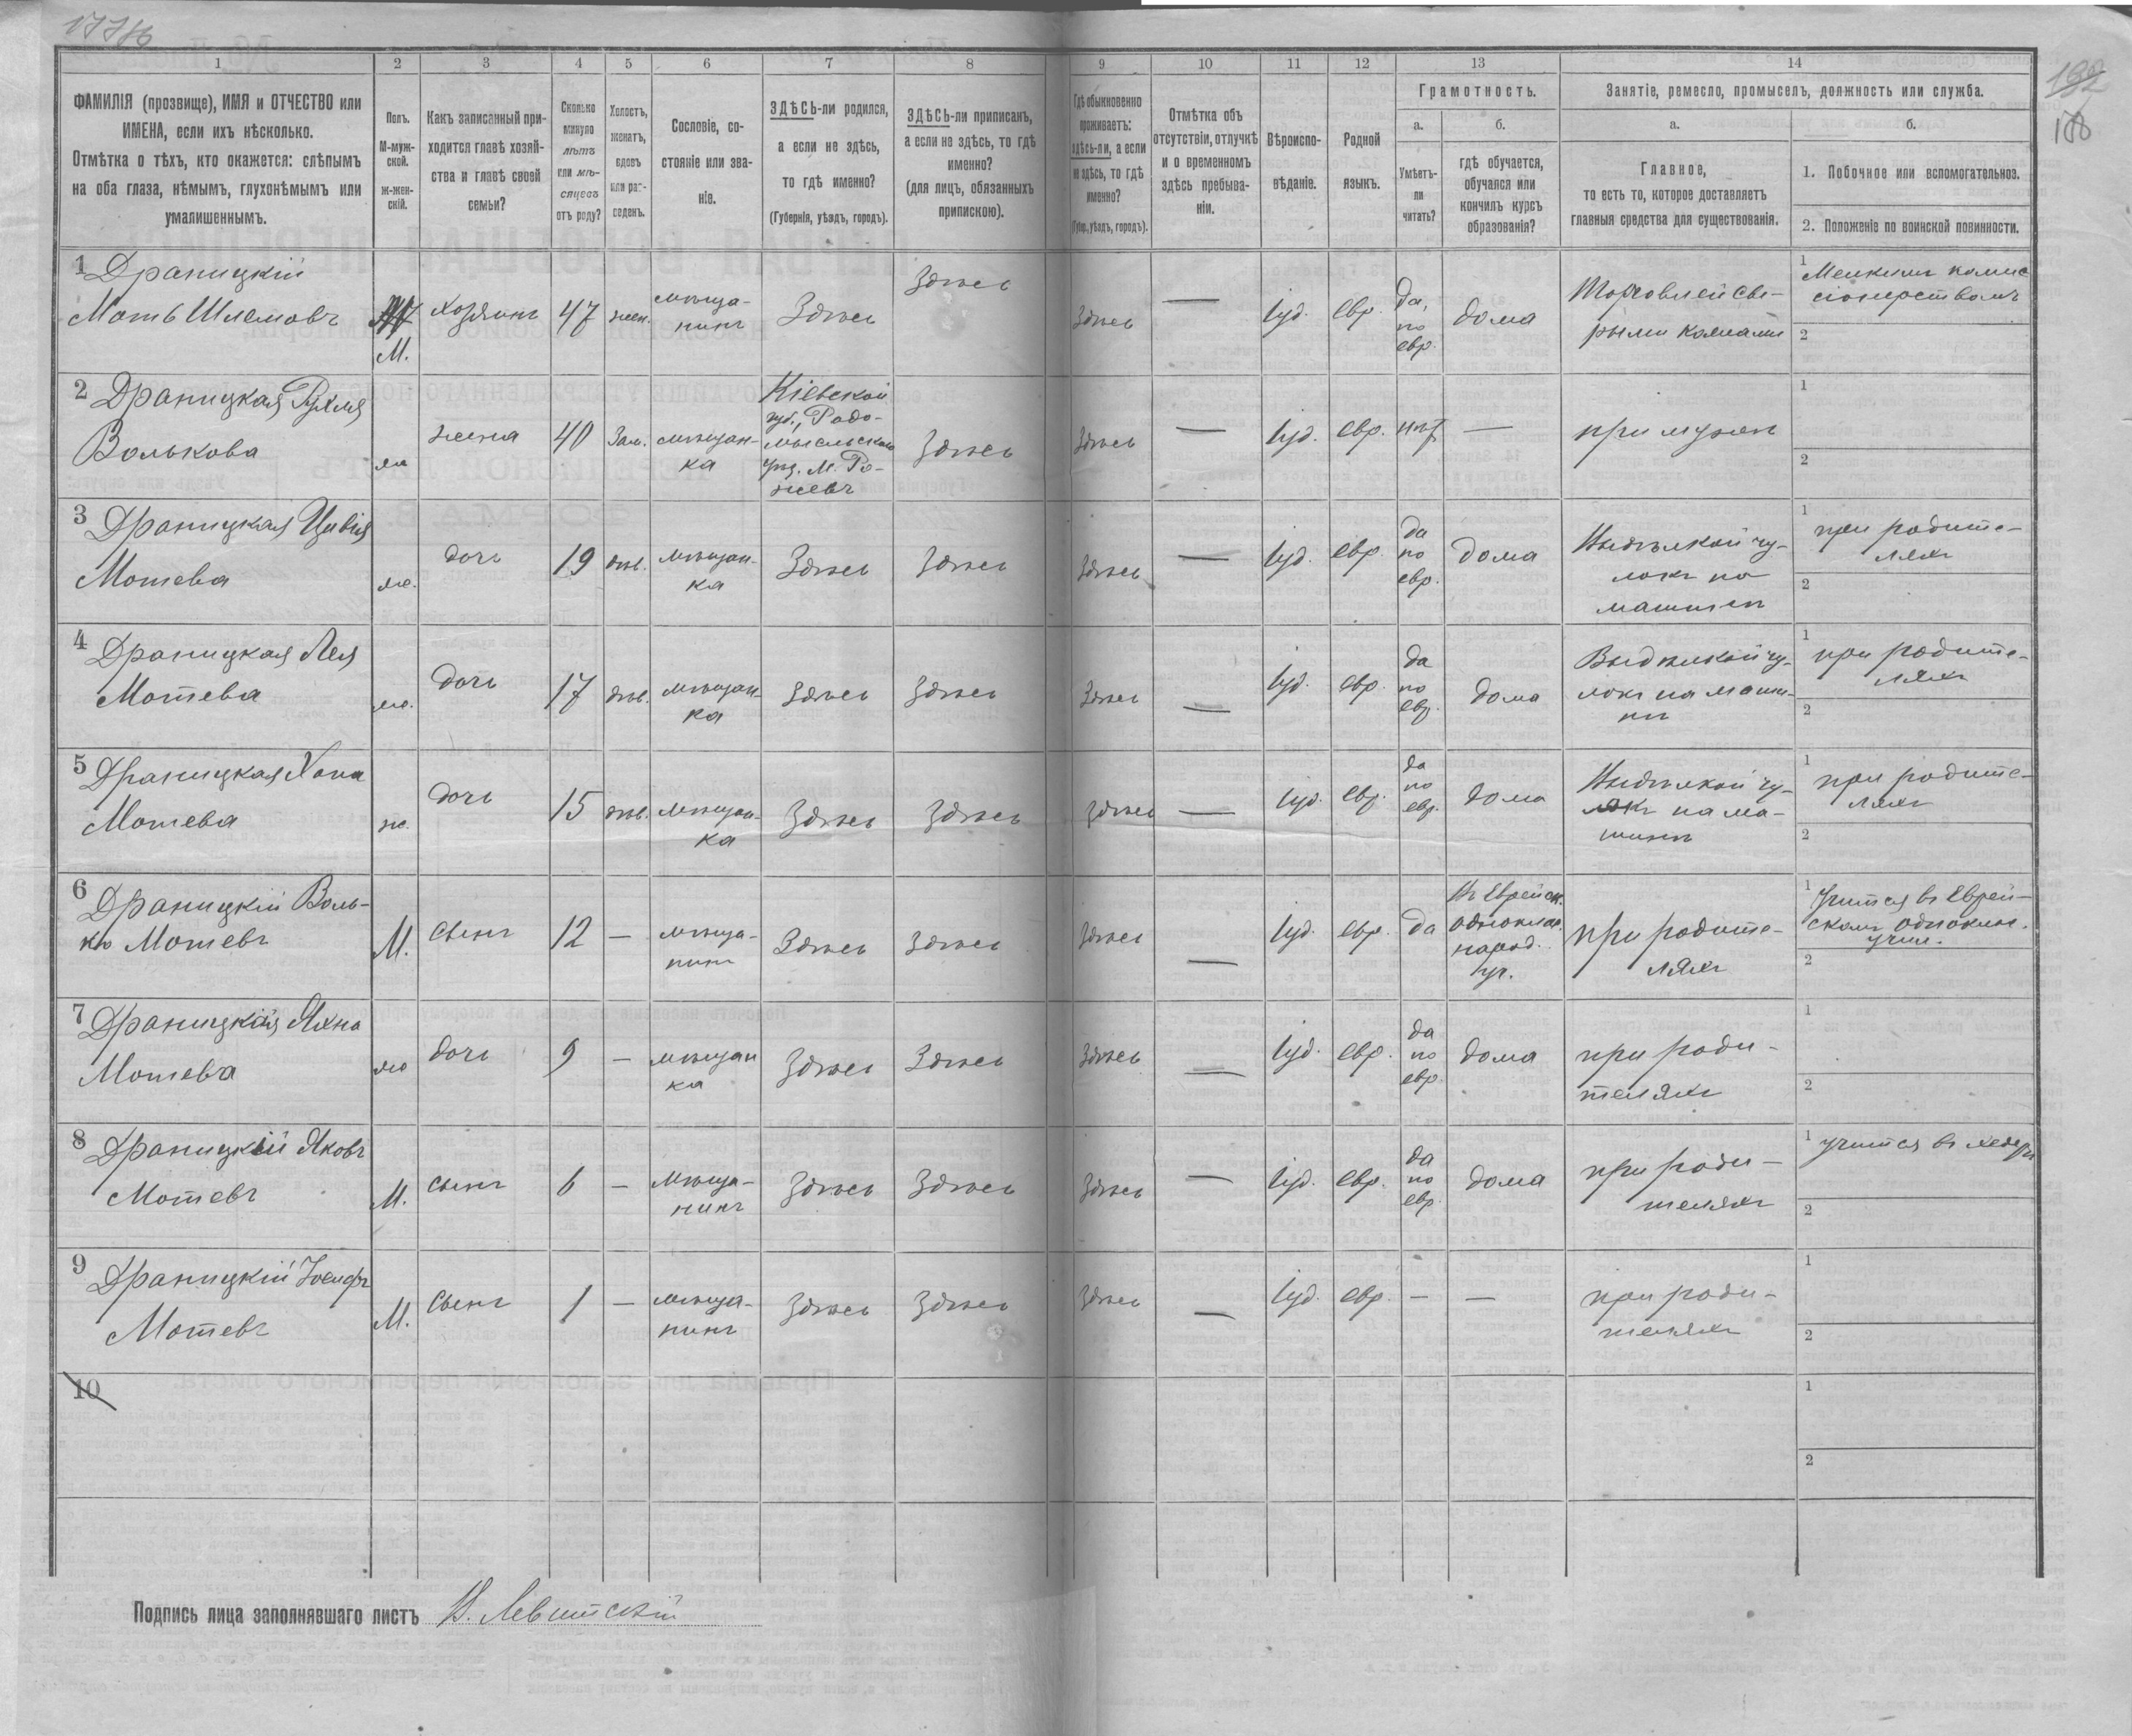 1 2 3 4 5 6 7 8 9 10 11 12 13 14
ФАМИЛІЯ (прозвище), ИМЯ и ОТЧЕСТВО или
ИМЕНА, если ихъ нѣсколько.
Отмѣтка о тѣхъ, кто окажется: слѣпымъ
на оба глаза, нѣмымъ, глухонѣмымъ или
умалишеннымъ.
Полъ.
М-муж-
ской.
Ж-жен-
скій.
Какъ записанный при-
ходится главѣ хозяй-
ства и главѣ своей
семьи?
Сколько
минуло
лѣтъ
или мѣ-
сяцевъ
отъ роду?
Холостъ,
женатъ,
вдовъ
или раз-
веденъ.
Сословіе, со-
стояніе или зва-
ніе.
ЗДѢСЬ-ли родился,
а если не здѣсь,
то гдѣ именно?
(Губернія, уѣздъ, городъ).
ЗДѢСЬ-ли приписанъ,
а если не здѣсь, то гдѣ
именно?
(для лицъ, обязанныхъ
припискою).
Гдѣ обыкновенно
проживаетъ:
здѣсь-ли, а если
не здѣсь, то гдѣ
именно?
(Губ., уѣздъ, городъ).
Отмѣтка объ
отсутствіи, отлучкѣ
и о временномъ
здѣсь пребыва-
ніи.
Вѣроиспо-
вѣданіе.
Родной
языкъ.
Грамотность.
а.
Умѣетъ-
ли
читать?
б.
гдѣ обучается,
обучался или
кончилъ курсъ
образованія?
Занятіе, ремесло, промыселъ, должность или служба.
а.
Главное,
то есть то, которое доставляетъ
главныя средства для существованія.
б.
1. Побочное или вспомогательное.
2. Положеніе по воинской повинности.
1 Драницкій
Моть Шлемовъ
М.
Хозяинъ
47
жен.
мѣща-
нинъ
Здѣсь
Здѣсь
Здѣсь
—
Іуд.
евр.
да,
по
евр.
дома
Торговлей сы-
рыми кожами
1 Мелкимъ комис
сіонерствомъ
2
2 Драницкая Рухля
Волькова
ж
жена
40
Зам.
мѣщан-
ка
Кіевской
губ., Радо-
мысльскаго
уѣз. М. Ро-
жевъ
Здѣсь
Здѣсь
—
Іуд.
евр.
нѣт
—
при мужѣ
1
2
3 Драницкая Цивія
Мотева
ж.
дочь
19
дѣв.
мѣщан-
ка
Здѣсь
Здѣсь
Здѣсь
—
Іуд.
евр.
да
по
евр.
дома
Выдѣлкой чу-
локъ на
машинѣ
1 при родите-
ляхъ
2
4 Драницкая Лея
Мотева
ж.
дочь
17
дѣв.
мѣщан
ка
Здѣсь
Здѣсь
Здѣсь
—
Іуд.
евр.
да
по
евр.
дома
Выдѣлкой чу-
локъ на маши-
нѣ
1 при родите-
ляхъ
2
5 Драницкая Хона
Мотева
ж.
дочь
15
дѣв.
мѣщан-
ка
Здѣсь
Здѣсь
Здѣсь
—
Іуд.
евр.
да
по
евр.
дома
Выдѣлкой чу-
локъ на ма-
шинѣ
1 при родите-
ляхъ
2
6 Драницкій Воль-
ко Мотевъ
М.
Сынъ
12
—
мѣща-
нинъ
Здѣсь
Здѣсь
Здѣсь
—
Іуд.
евр.
да
Въ Еврейск.
одноклас.
народ.
уч.
при родите-
ляхъ
1 Учится въ Еврей-
скомъ одноклас.
учил.
2
7 Драницкая Яхна
Мотева
ж
дочь
9
—
мѣщан
ка
Здѣсь
Здѣсь
Здѣсь
—
Іуд.
евр.
да
по
евр.
дома
при роди-
теляхъ
1
2
8 Драницкій Яковъ
Мотевъ
М.
Сынъ
6
—
мѣща-
нинъ
Здѣсь
Здѣсь
Здѣсь
—
Іуд.
евр.
да
по
евр
дома
при роди-
теляхъ
1 учится въ хедерѣ
2
9 Драницкій Іосифъ
Мотевъ
М.
Сынъ
1
—
мѣща-
нинъ
Здѣсь
Здѣсь
Здѣсь
—
Іуд.
евр.
—
—
при роди-
теляхъ
1
2
10
1
2
Подпись лица заполнявшаго листъ В. Левитскій